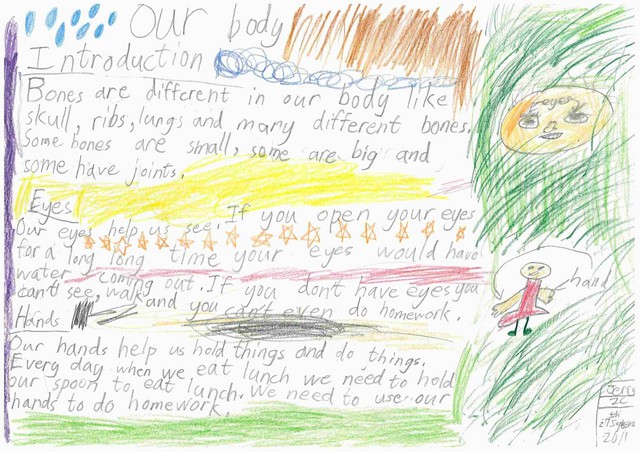 Our body
Introduction
Bones are different in our body like
skull, ribs, lungs and many different bones.
Some bones are small, some are big and
some have joints.
Eyes
Our eyes help us see. If you open your eyes
for a long long time your eyes would have
water coming out. If you don't have eyes you
can't see, walk and you can't even do homework.
Hands
Our hands help us hold things and do things.
Every day when we eat lunch we need to hold
our spoon to eat lunch. We need to use our
hands to do homework.
eyes
hand
2C
2011